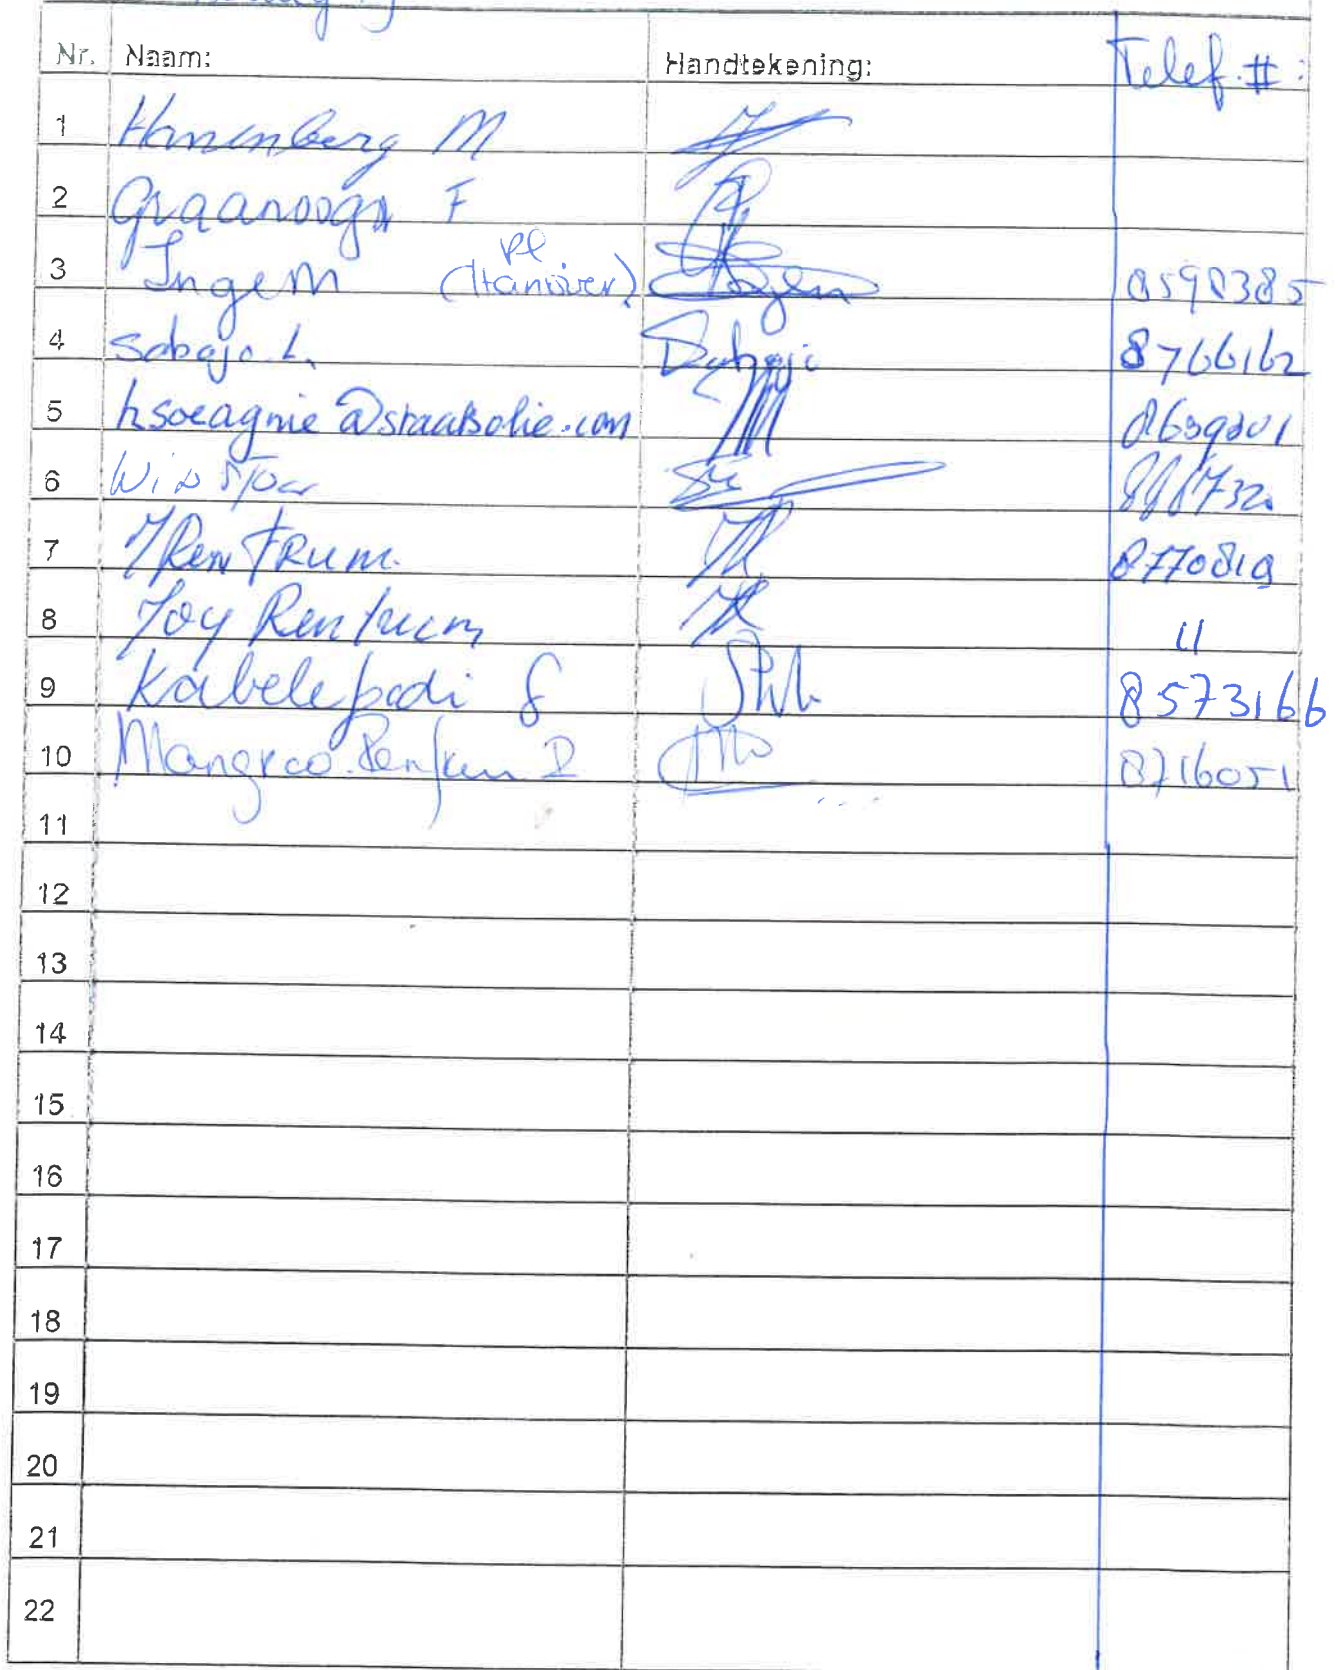 Nr. Naam: Handtekening: Telef. #:
1 Hanenberg M
2 Graanoogst F
3 Ingem pl (Hanover) 8598385
4 Sabajo L. 8766162
5 hsoeagnie@staatsolie.com
6 Winston
7 Rentrum. 8770819
8 Joy Rentrum "
9 Kabelefodi S 8573166
10 Mangroo. 8716051
11
12
13
14
15
16
17
18
19
20
21
22